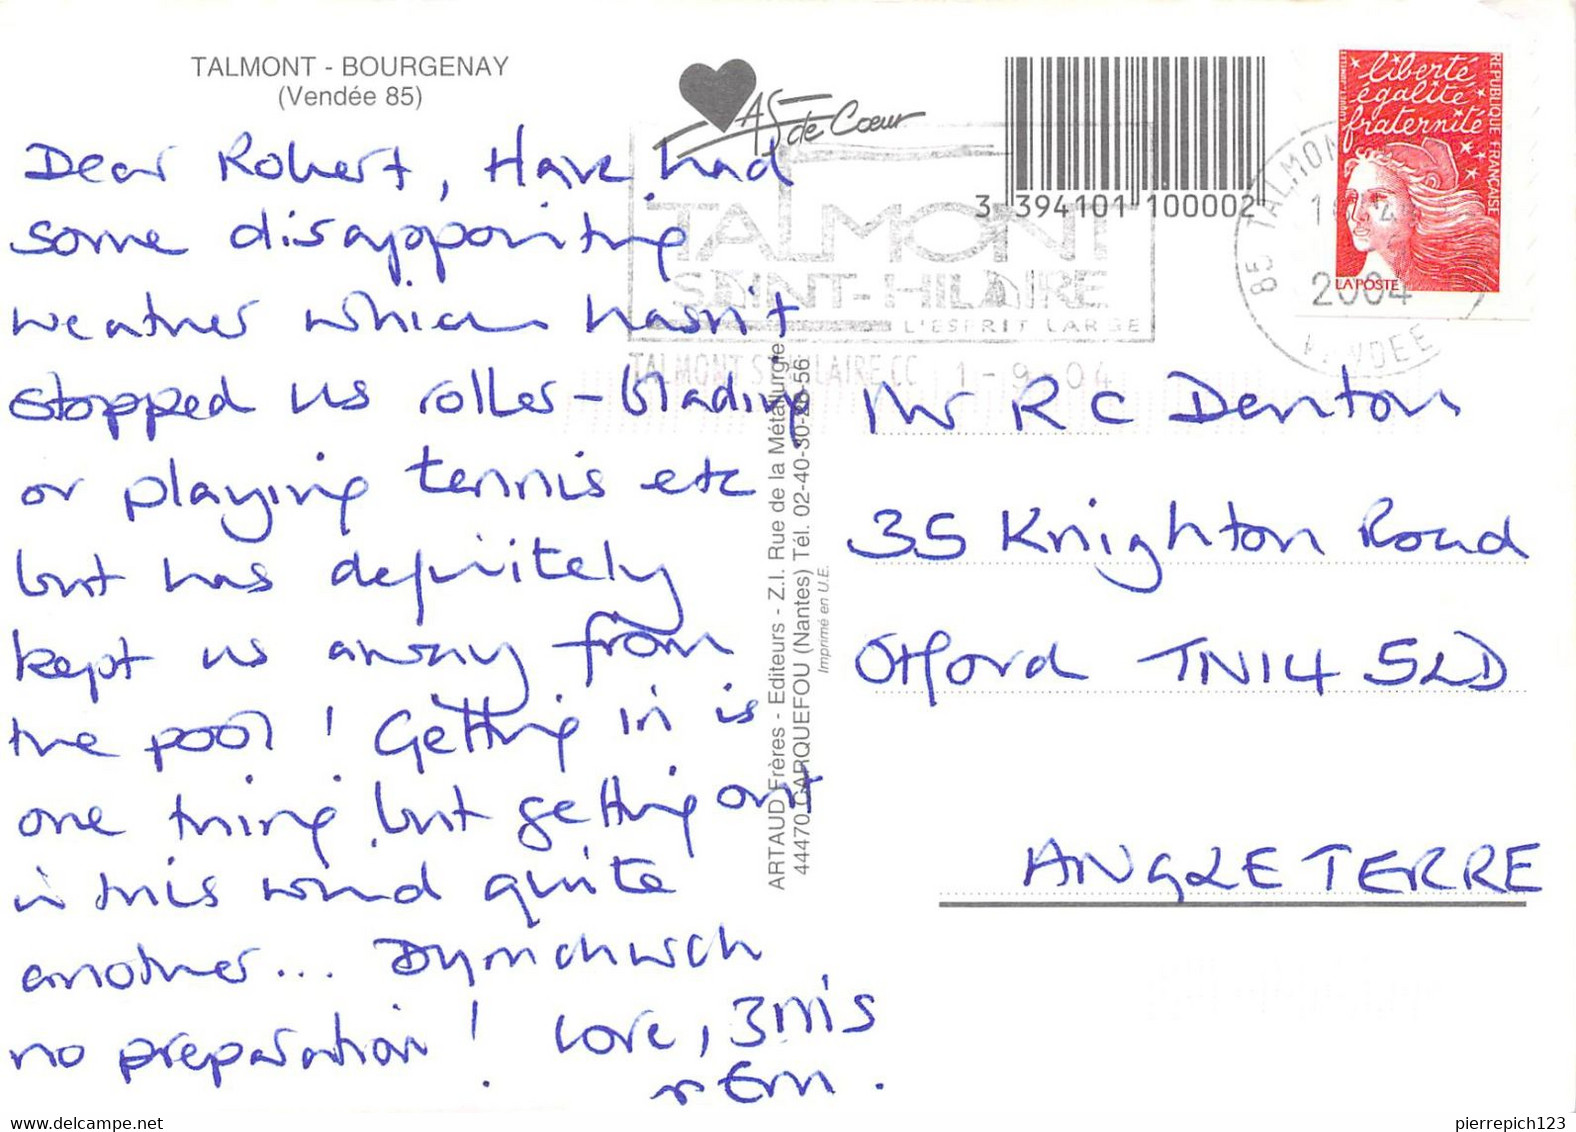 TALMONT - BOURGENAY
(Vendée 85)
Dear Robert, Have had
some disappointing
weather which hasn't
stopped us roller-blading
or playing tennis etc
but has definitely
kept us away from
the pool! Getting in is
one thing but getting out
in this wind quite
another... Dymchurch
no preparation! Love,
As de Cœur
3 394101 100002
TALMONT
SAINT-HILAIRE
L'ESPRIT LARGE
1-9-04
liberté
égalité
fraternité
RÉPUBLIQUE FRANÇAISE
LA POSTE
85 TALMONT
2004
VENDEE
ARTAUD Frères - Editeurs - Z.I. Rue de la Métallurgie
44470 CARQUEFOU (Nantes) Tél. 02-40-30-56
Imprimé en U.E.
Mr R C Denton
35 Knighton Road
Otford TN14 5LD
ANGLETERRE
pierrepich123